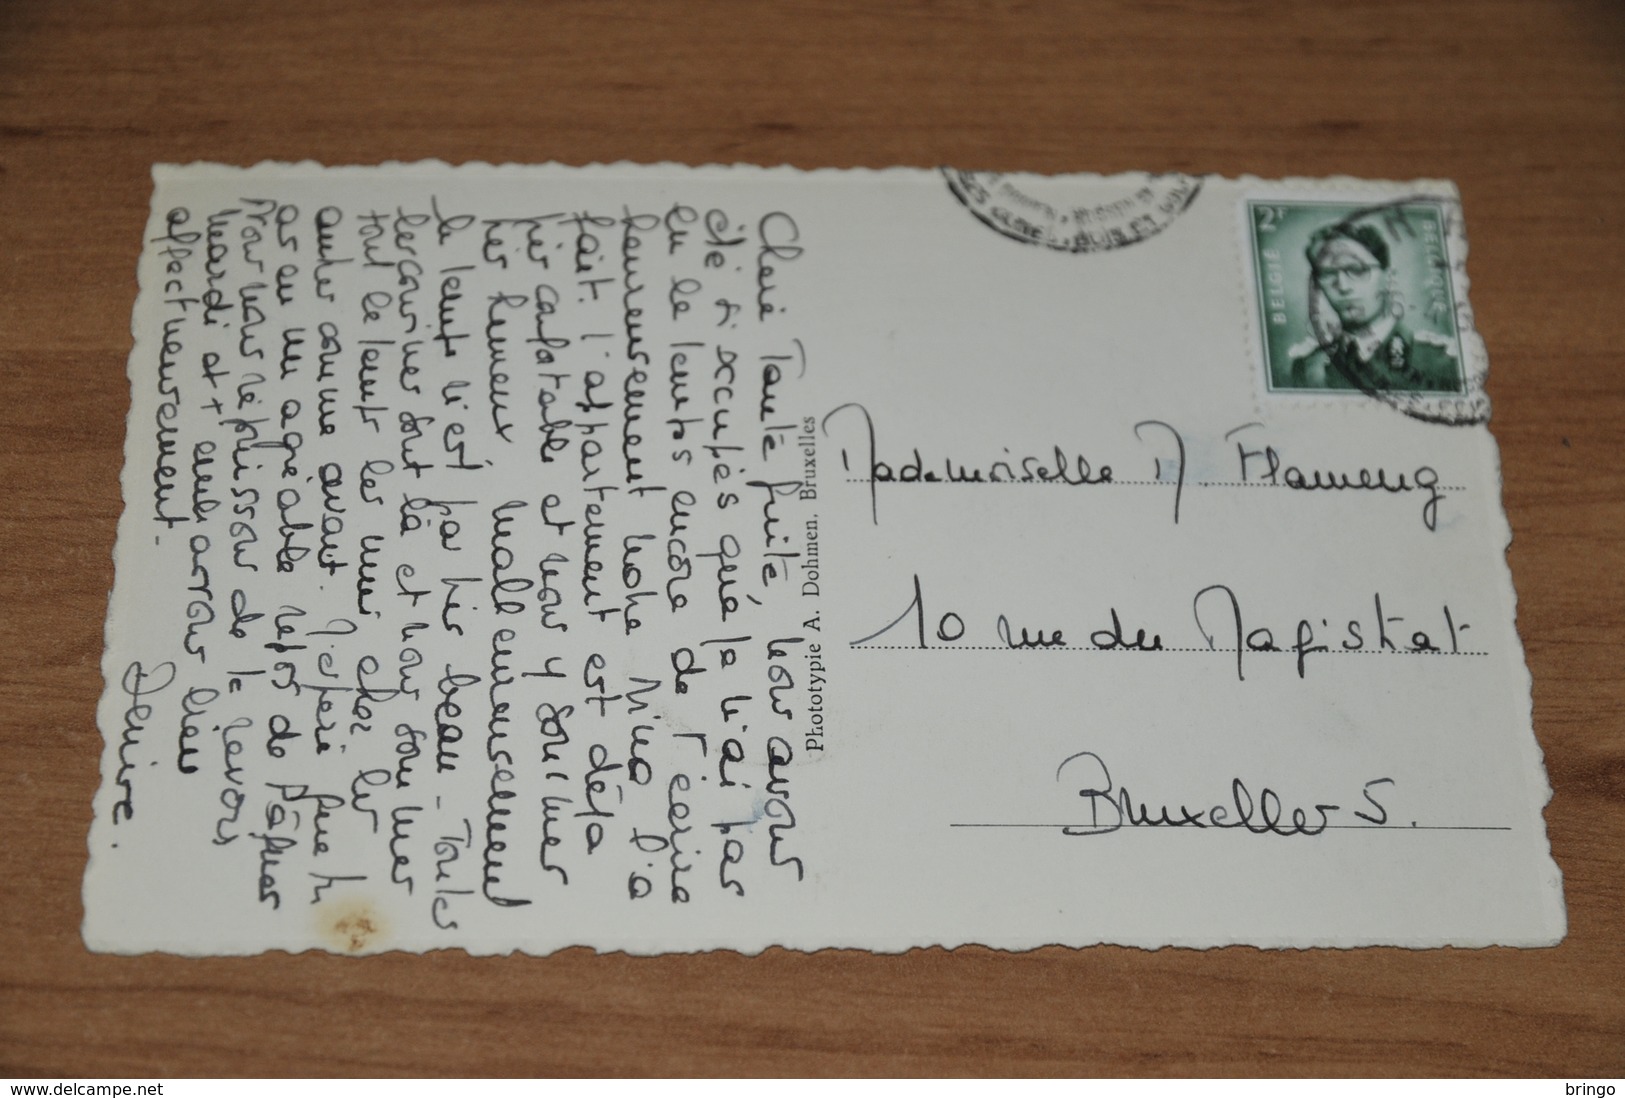 Chère Tante Guité, nous avons
été si occupés que je n'ai pas
eu le temps encore de t'écrire
heureusement notre Nino l'a
fait. l'appartement est déjà
très confortable et nous y sommes
très heureux. malheureusement
le temps n'est pas très beau - Toutes
les cousines sont là et nous sommes
tout le temps les unes chez les
autres comme avant. J'espère que tu
as eu un agréable repos de Pâques
Nous nous réjouissons de te revoir
mardi et t'embrassons bien
affectueusement.
Denise.
Phototypie A. Dohmen, Bruxelles
2F
BELGIE
BELGIQUE
Mademoiselle M. Flameng
10 rue du Magistrat
Bruxelles 5.
www.delcampe.net
bringo